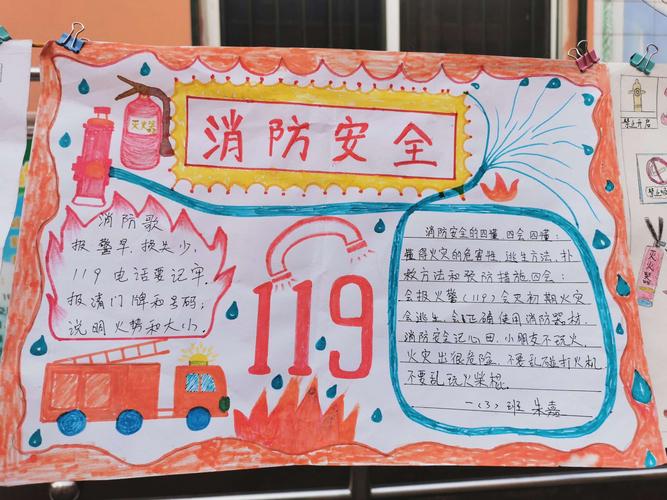 消防安全
灭火器
消防歌
报警早,损失少,
119电话要记牢,
报清门牌和号码,
说明火势和大小.
119
消防安全的四懂 四会 四懂:
懂得火灾的危害性、逃生方法、扑
救方法和预防措施.四会:
会报火警(119)会灭初期火灾
会逃生.会正确使用消防器材.
消防安会记心田.小朋友不玩火.
火灾出很危险.不要乱碰打火机
不要乱玩火柴棍.
一(3)班 朱嘉
禁止开启
灭火器